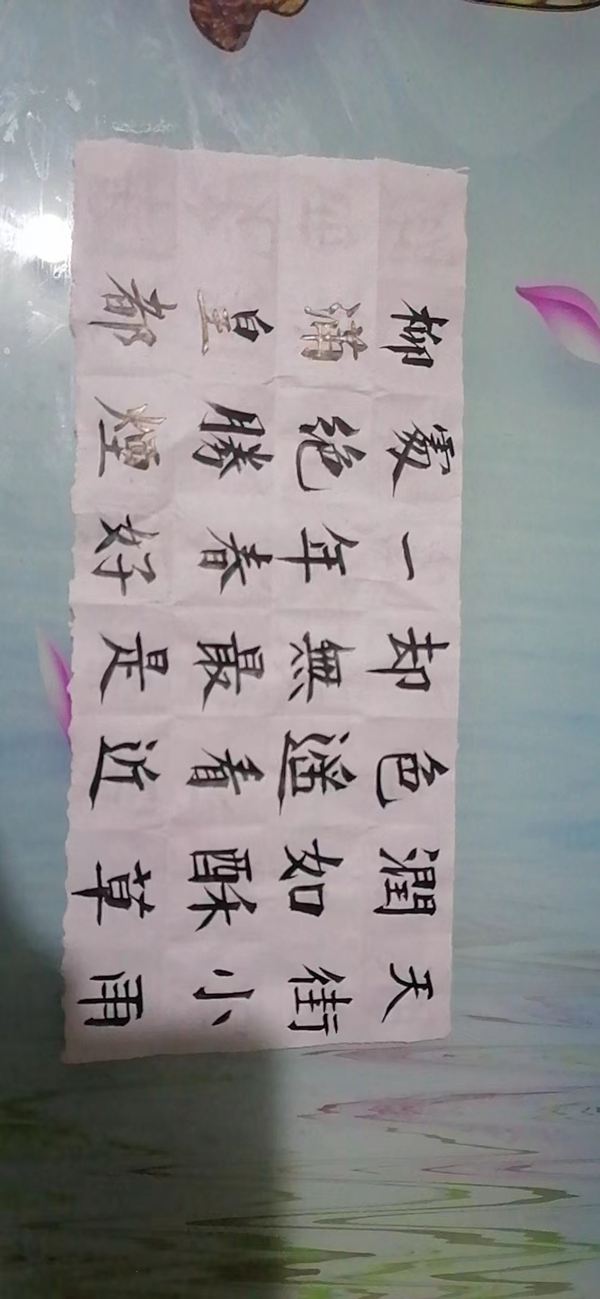 天街小雨
潤如酥草
色遥看近
却無最是
一年春好
處絶勝煙
柳滿皇都